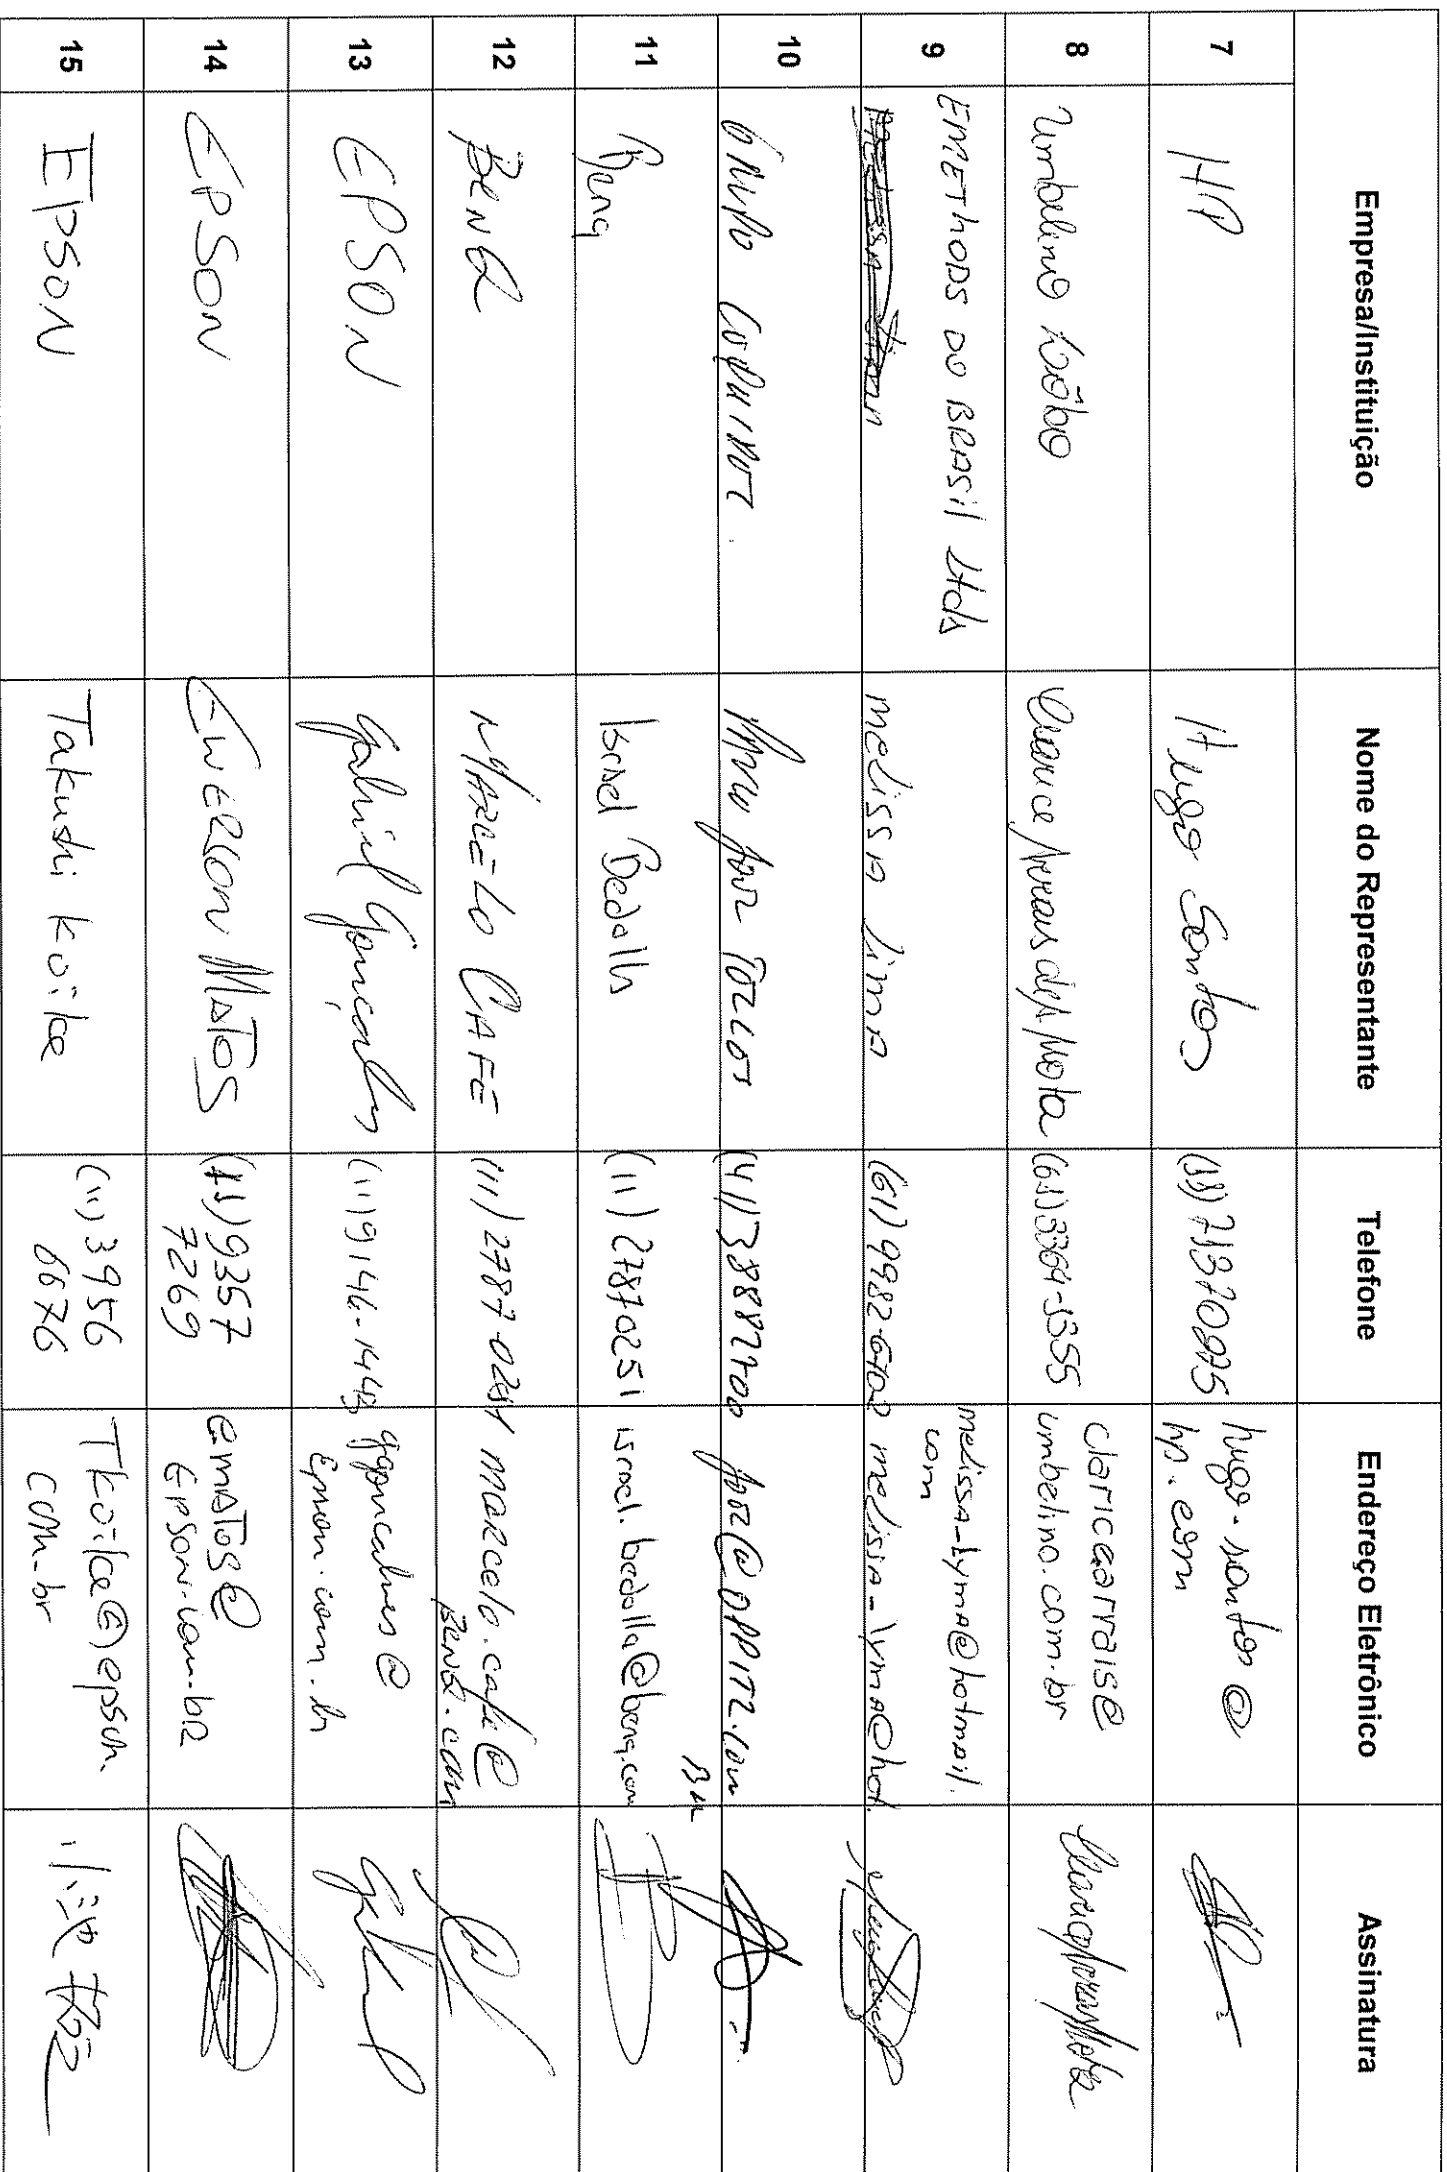 Empresa/Instituição Nome do Representante Telefone Endereço Eletrônico Assinatura
7 HP Hugo Santos hugo.santos@
hp.com
8 Umbelino Lôbo Clarice Arrais da Mota (61) 3364-3355 claricearrais@
umbelino.com.br
9 EMETHODS DO BRASIL Ltda Melissa Lima (61) 9982-6702 melissa-lyma@hotmail.
com
melissa-lyma@hot.
10 GRUPO (41) 38887700
11 Benq Israel Bedalla (11) 27870251 israel.bedalla@benq.com
12 BenQ MARCELO CAFÉ (11) 2787-0281 marcelo.cafe@
BenQ.com
13 EPSON Gabriel Gonçalves (11) 9146-1448 ggoncalves@
Epson.com.br
14 EPSON EWERSON MATOS (11) 9357
7269 ematos@
Epson.com.br
15 EPSON Takushi Koike (11) 3956
6676 Tkoike@epson.
com.br
小池